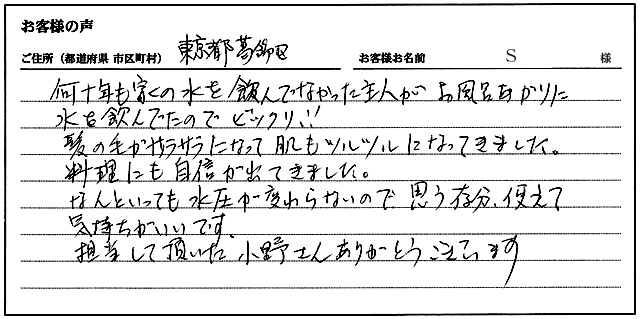 お客様の声
ご住所（都道府県 市区町村） 東京都葛飾区 お客様お名前 S 様
何十年も家の水を飲んでなかった主人が お風呂あがりに
水を飲んでたので ビックリ!!
髪の毛がサラサラになって 肌もツルツルになってきました。
料理にも自信が出てきました。
なんといっても 水圧が変わらないので 思う存分、使えて
気持ちがいいです。
担当して頂いた 小野さんありがとうございます